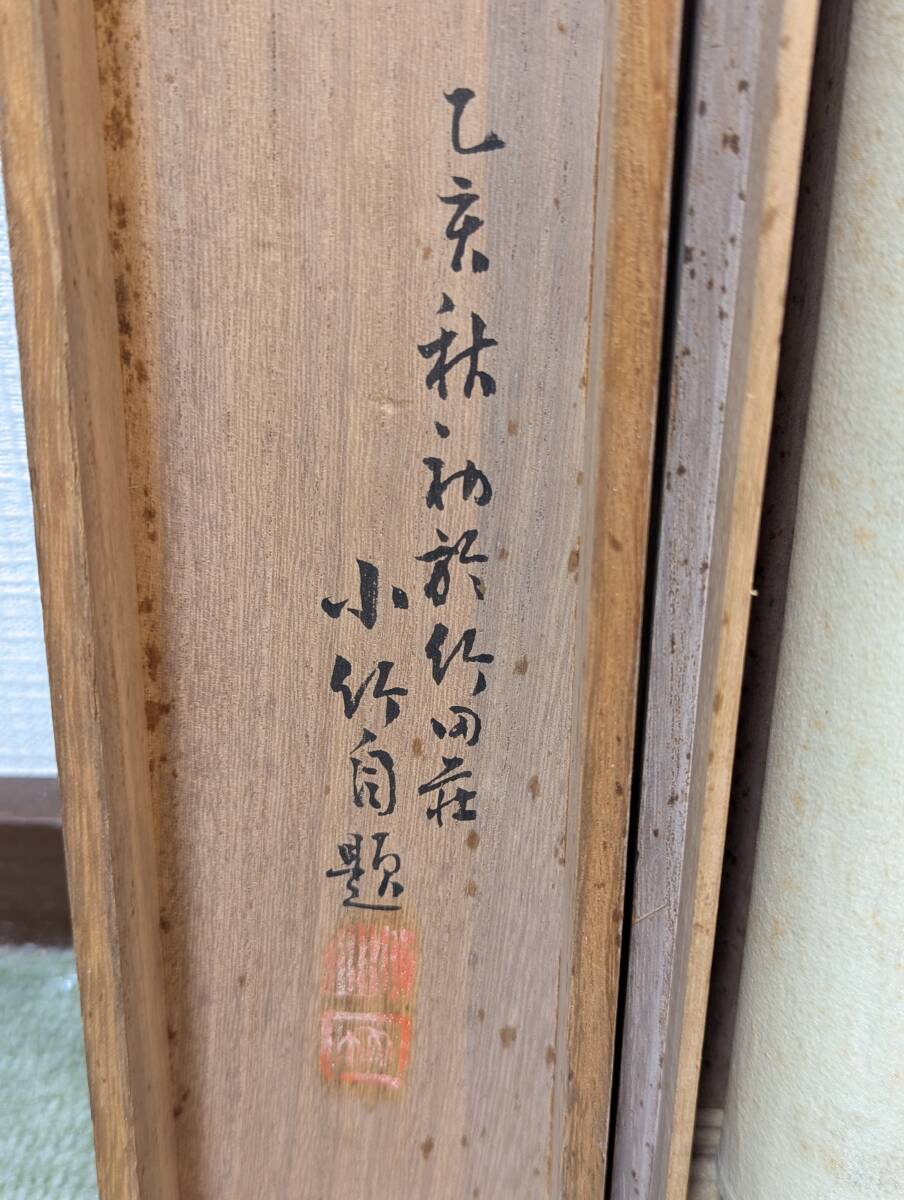 乙亥秋初於竹田荘
小竹自題